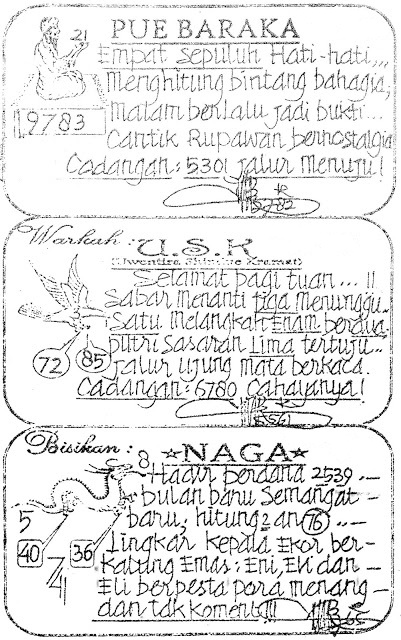 PUE BARAKA
21
Empat sepuluh Hati-hati,,,
Menghitung bintang bahagia,
Malam berlalu jadi bukti...
9783
Cantik Rupawan bernostalgia
Cadangan: 5301 jalur Menuju!
Warkah: U.S.K
Selamat pagi tuan... !!
Sabar Menanti tiga Menunggu..
Satu Melangkah Enam berdua
putri Sasaran Lima tertuju..
72 85
jalur ujung mata berkaca.
Cadangan: 6780 Cahayanya!
Bisikan: ☆NAGA☆
8
Hadir perdana 2539.—
bulan baru Semangat —
5
baru, hitung2an 76 ..—
40 36
Lingkar kepala Ekor ber-
kalung Emas: Eni, Evi dan —
74
Eli berpesta pora menang —
dan tak komentar!!!